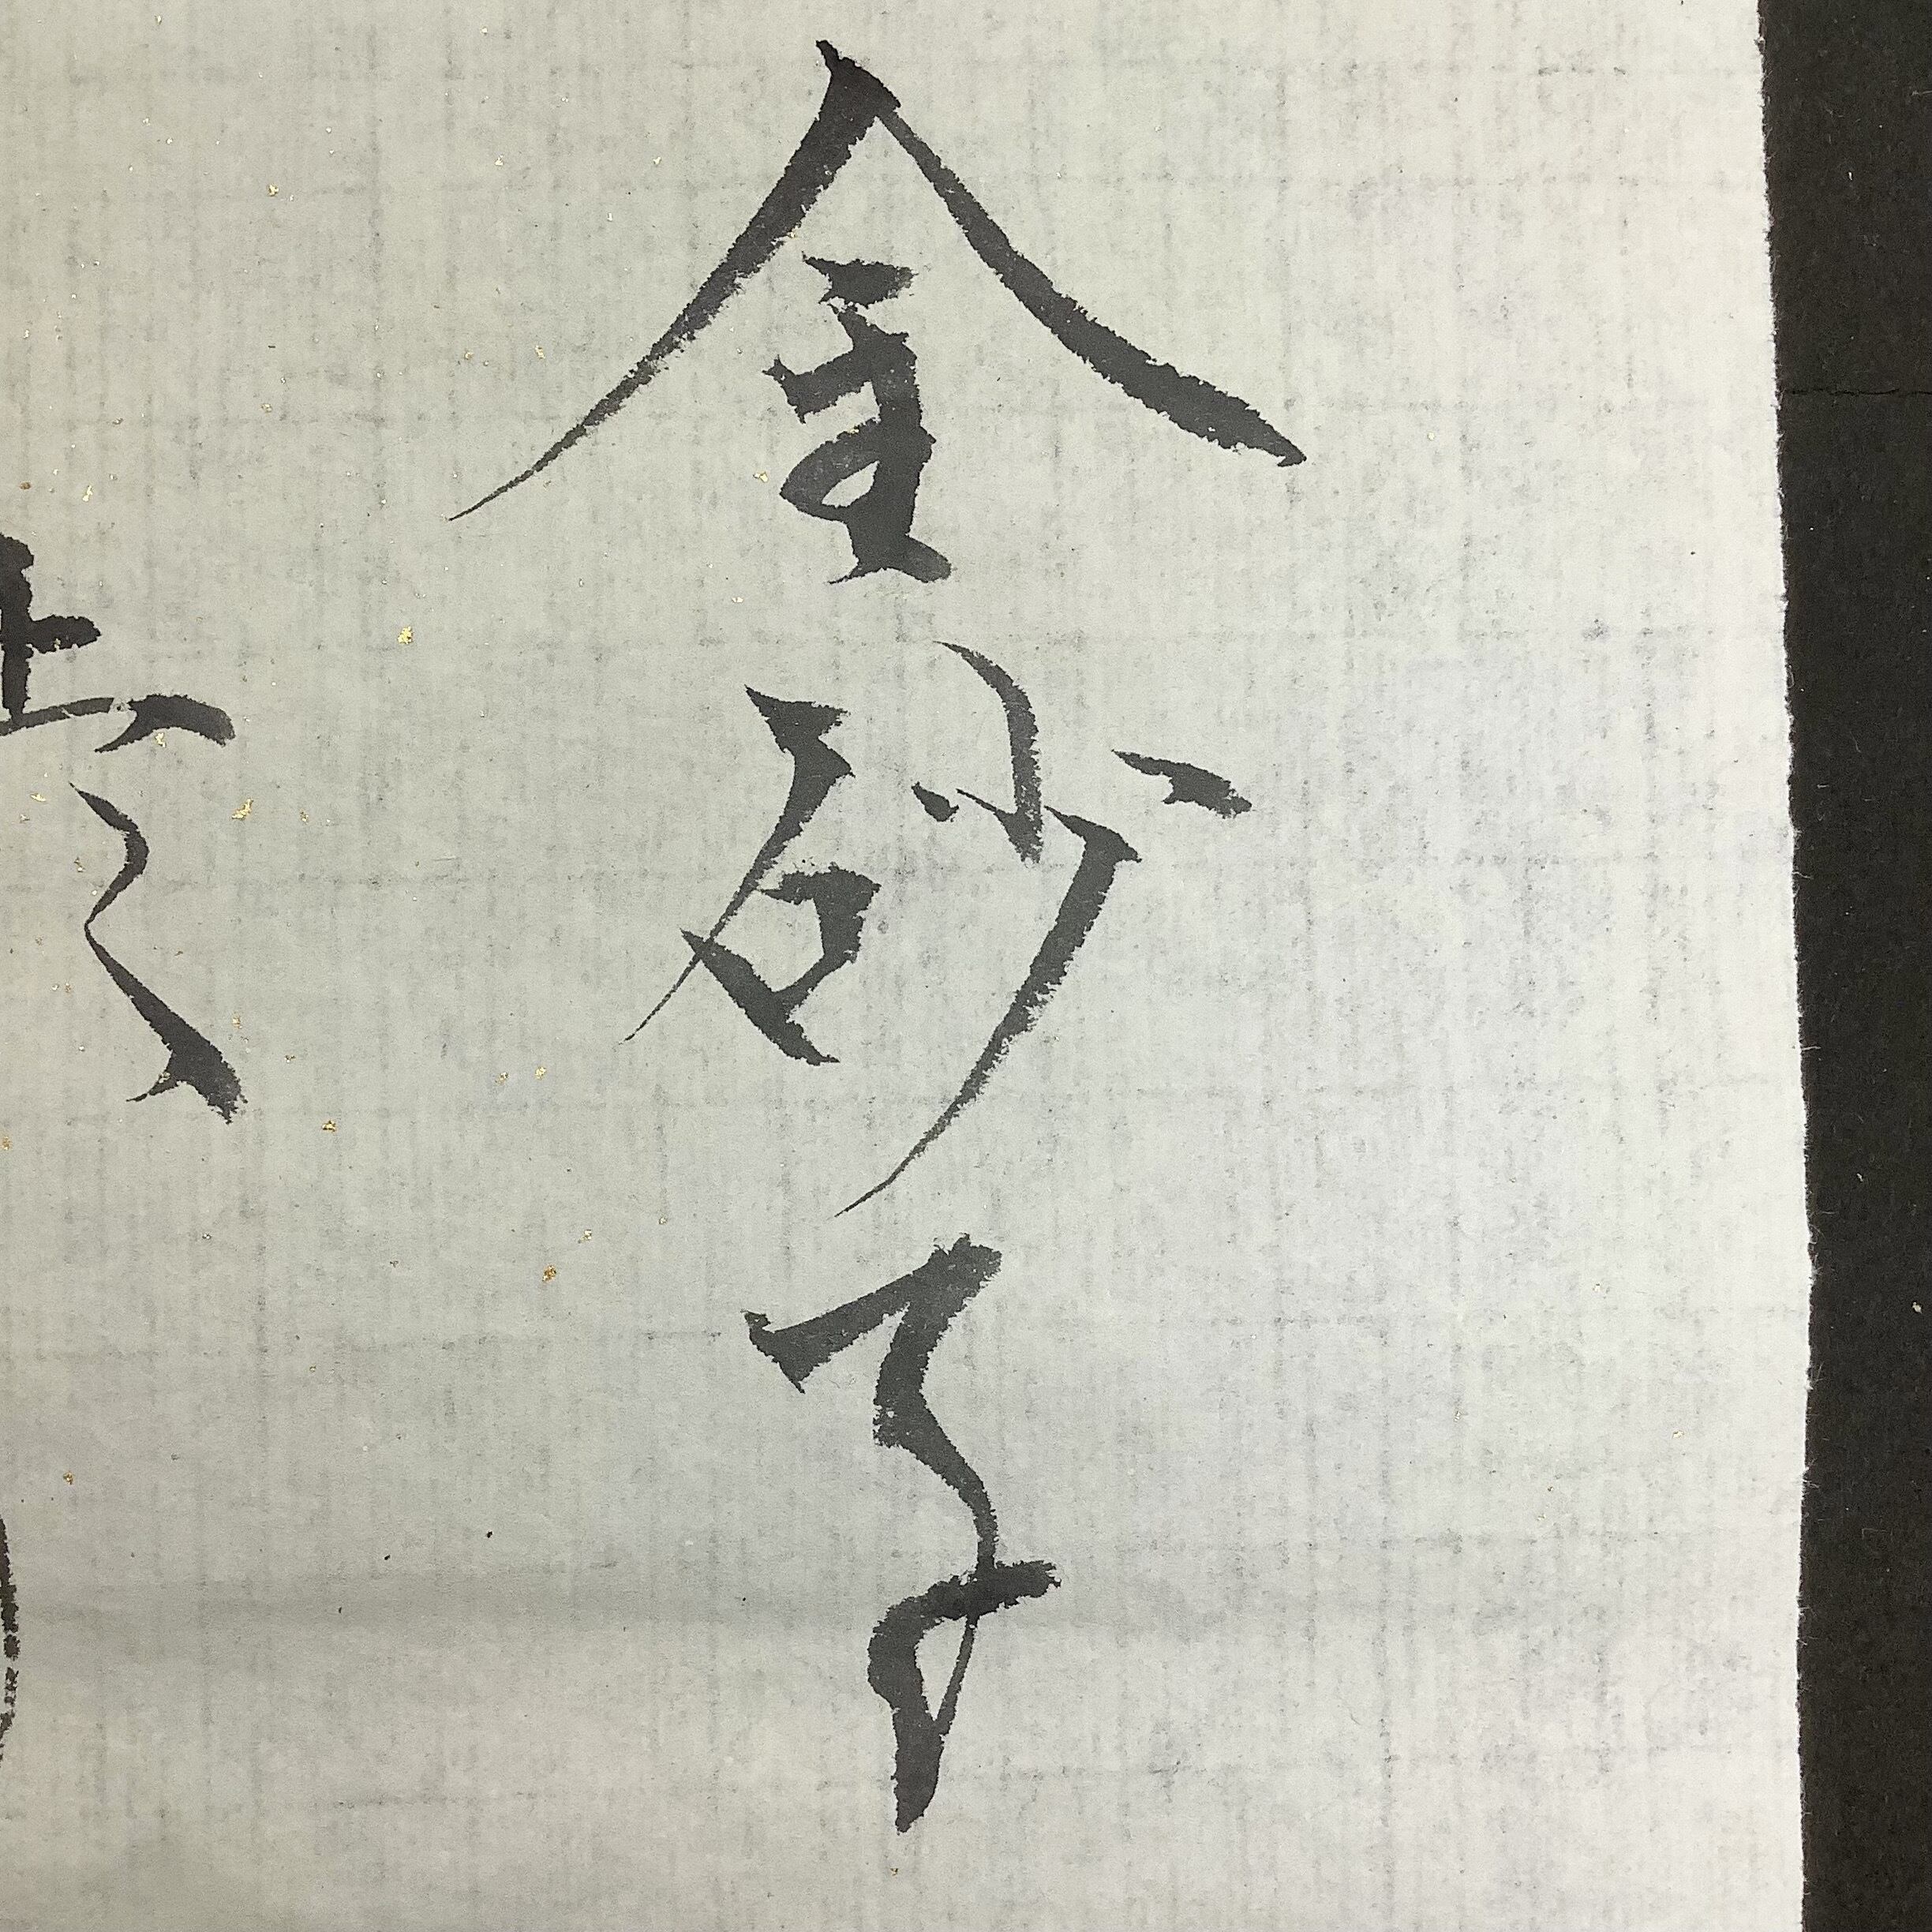 金砂子